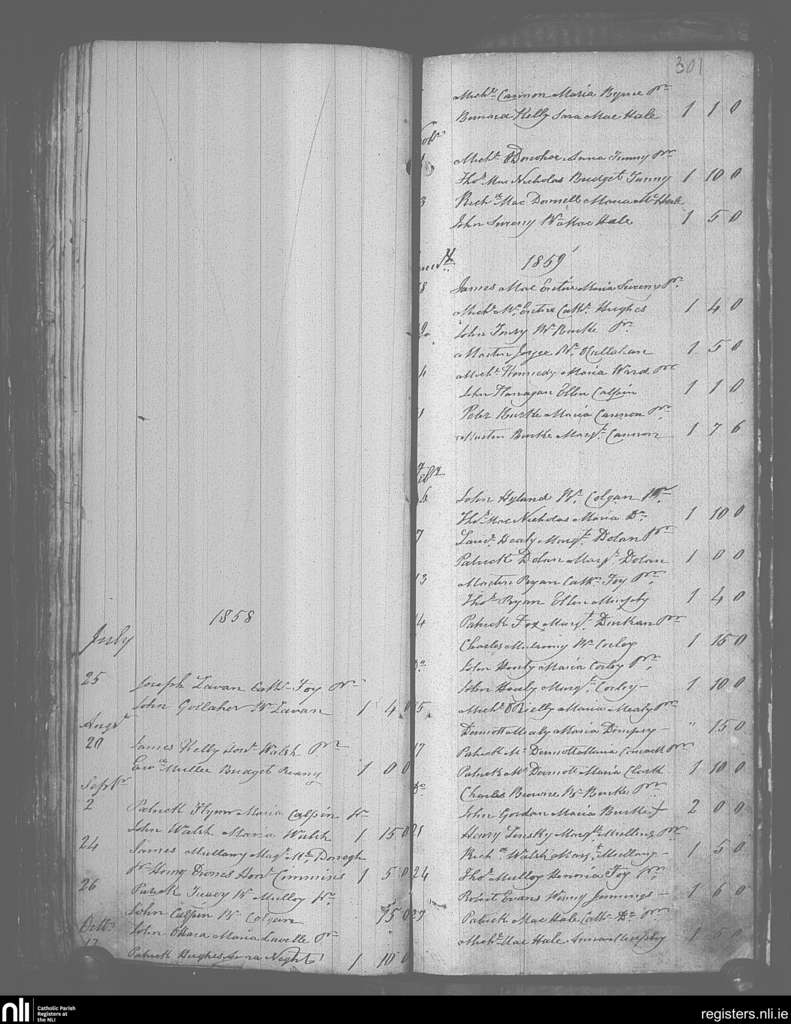 1858
July
25
Joseph Lavan Cath. Foy Pr
John Gollaher Wr Lavan 1 4 0
Augst
20
James Kelly Honr Walsh Pr
Edwd Muller Bridget Reany 1 0 0
Septbr
2
Patrick Flynn Maria Calpin Pr
John Walsh Maria Walsh 1 15 0
24
James Mullowny Margt Mc Donogh
Honr Commins 1 5 0
26
Patrick Wr Mulloy Pr
John Calpin Wr Colgan 15 0
Octbr
17
John Ohara Maria Lavelle Pr
Patrick Hughes Anna Night 1 10 0
301
Michl Cannon Maria Byrne Pr
Bernard Kelly Sara Mac Hale 1 1 0
Michl Donohoe Anna Tunny Pr
Thos Mac Nicholas Bridget Tunny 1 10 0
3
Richd Mac Donnell Maria Mc Hale
John Sweeny Wr Mac Hale 1 5 0
1859
8
James Mac Entire Maria Sweeny Pr
Michl Mc Entire Cath. Hughes 1 4 0
John Wr Burke Pr
Martin Joyce Wr Cullahan 1 5 0
4
Michl Kennedy Maria Ward Pr
John Flanagan Ellen Calpin 1 1 0
1
Peter Burke Maria Cannon Pr
Martin Burke Margt Cannon 1 7 6
Febr
6
John Hyland Wr Colgan Pr
Thos Mac Nicholas Maria Do 1 10 0
7
Laurc Dealy Margt Dolan Pr
Patrick Dolan Margt Dolan 1 0 0
13
Martin Ryan Cath. Foy Pr
Thos Ryan Ellen Murphy 1 4 0
14
Patrick Fox Margt Durkan Pr
Charles Mulrowny Wr Corley 1 15 0
Do
John Healy Maria Corley Pr
John Healy Margt Corley 1 10 0
15
Michl O Reilly Maria Mealy Pr
Dermott Mealy Maria Dempsey " 15 0
17
Patrick Mc Dermott Maria Pr
Patrick Mc Dermott Maria 1 10 0
Do
Charles Browne Wr Burke Pr
John Gordon Maria Burke 2 0 0
21
Henry Margt Mullins Pr
Richd Walsh Margt Mullany 1 5 0
24
Thos Mulloy Honoria Foy Pr
Robert Evans Winny Jennings 1 6 0
27
Patrick Mac Hale Cath. Do Pr
Michl Mac Hale Anna Murphy 1 5 0
nli Catholic Parish Registers at the NLI
registers.nli.ie